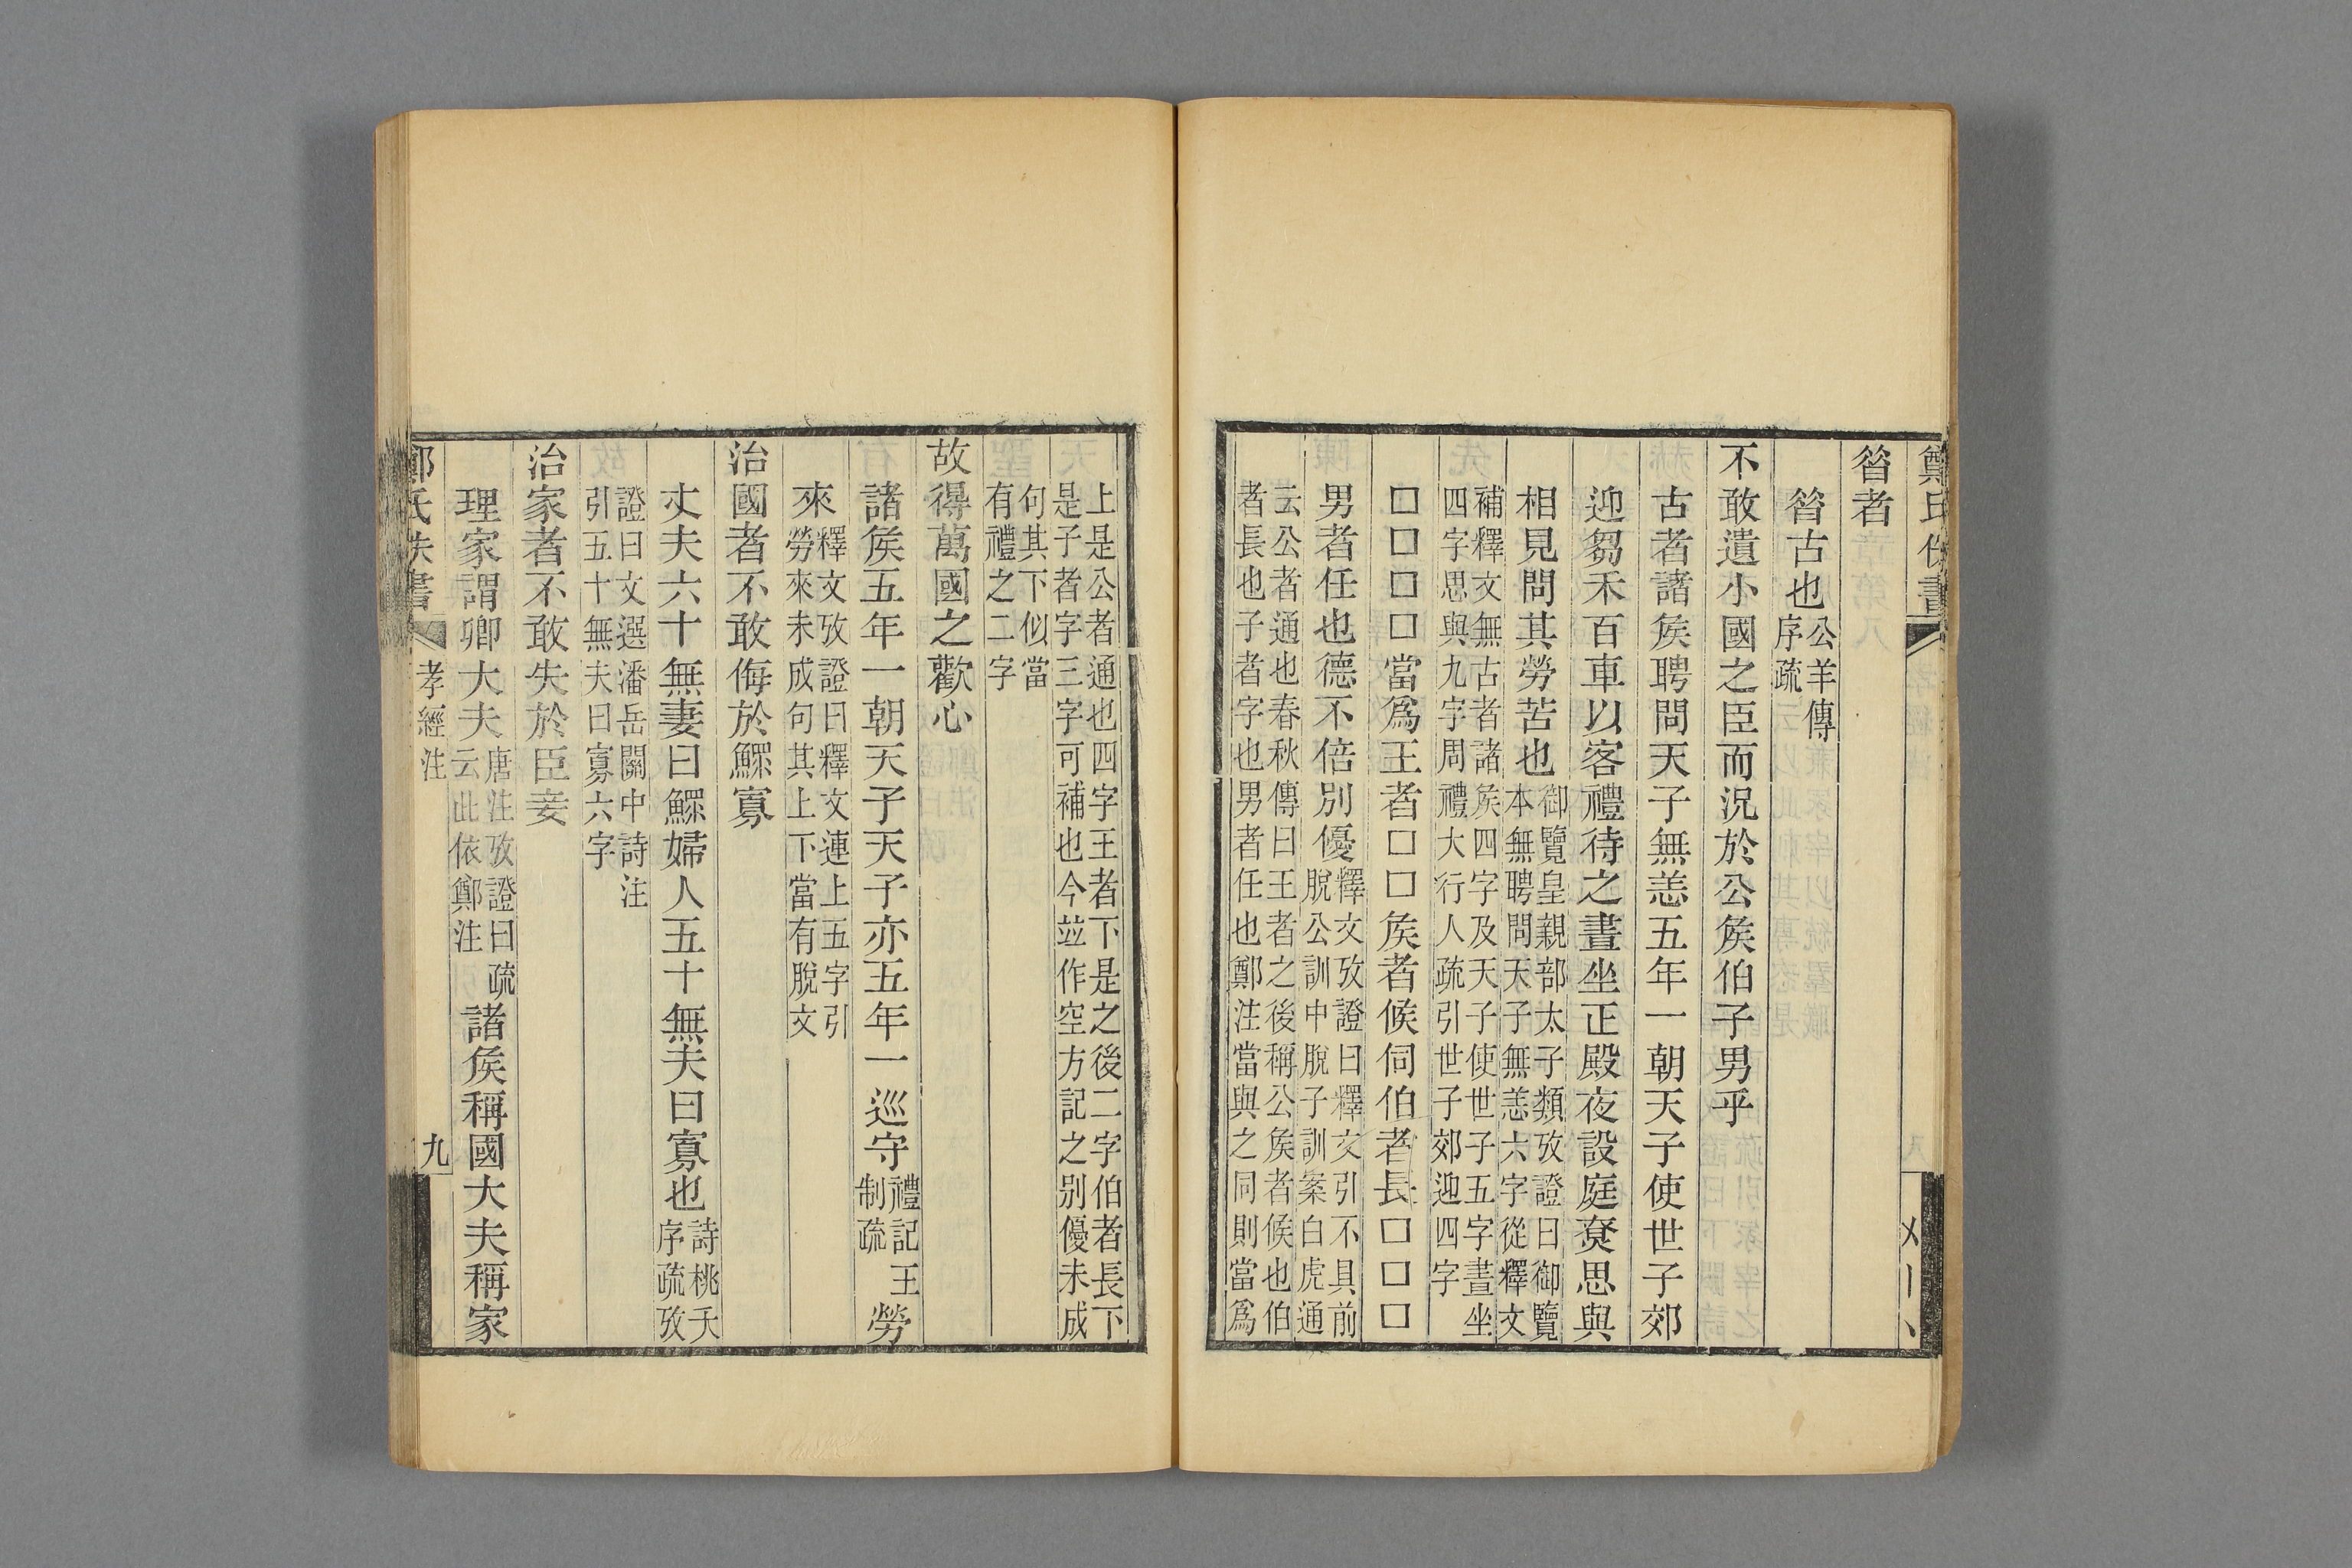 昝者
昝古也公羊傳
序疏
不敢遺小國之臣而況於公矦伯子男乎
古者諸矦聘問天子無恙五年一朝天子使世子郊
迎芻禾百車以客禮待之晝坐正殿夜設庭燎思與
相見問其勞苦也御覽皇親部太子類攷證曰御覽
本無聘問天子無恙六字從釋文
補釋文無古者諸矦四字及天子使世子五字晝坐
四字思與九字周禮大行人疏引世子郊迎四字
□□□□當爲王者□□矦者候伺伯者長□□□
男者任也德不倍別優釋文攷證曰釋文引不具前
脫公訓中脫子訓案白虎通
云公者通也春秋傳曰王者之後稱公矦者候也伯
者長也子者字也男者任也鄭注當與之同則當爲
上是公者通也四字王者下是之後二字伯者長下
是子者字三字可補也今竝作空方記之別優未成
句其下似當
有禮之二字
故得萬國之歡心
諸矦五年一朝天子天子亦五年一巡守禮記王
制疏勞
來釋文攷證曰釋文連上五字引
勞來未成句其上下當有脫文
治國者不敢侮於鰥寡
丈夫六十無妻曰鰥婦人五十無夫曰寡也詩桃夭
序疏攷
證曰文選潘岳關中詩注
引五十無夫曰寡六字
治家者不敢失於臣妾
理家謂卿大夫唐注攷證曰疏
云此依鄭注諸矦稱國大夫稱家
鄭氏佚書
孝經注
九